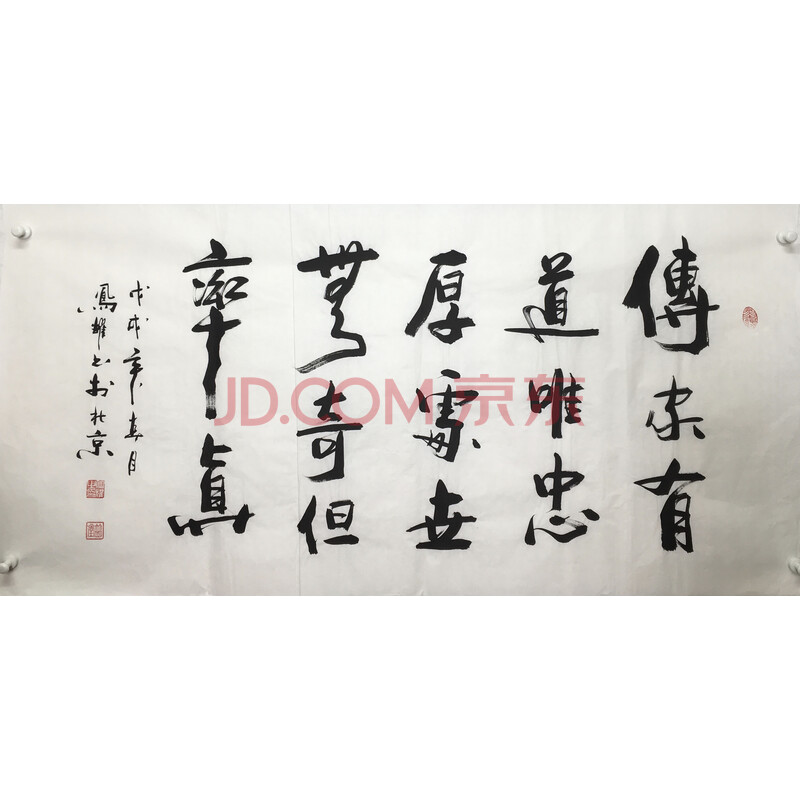 傳家有
道唯忠
厚處世
無奇但
率真
戊戌年春月
鳳耀書於北京
JD.COM 京东